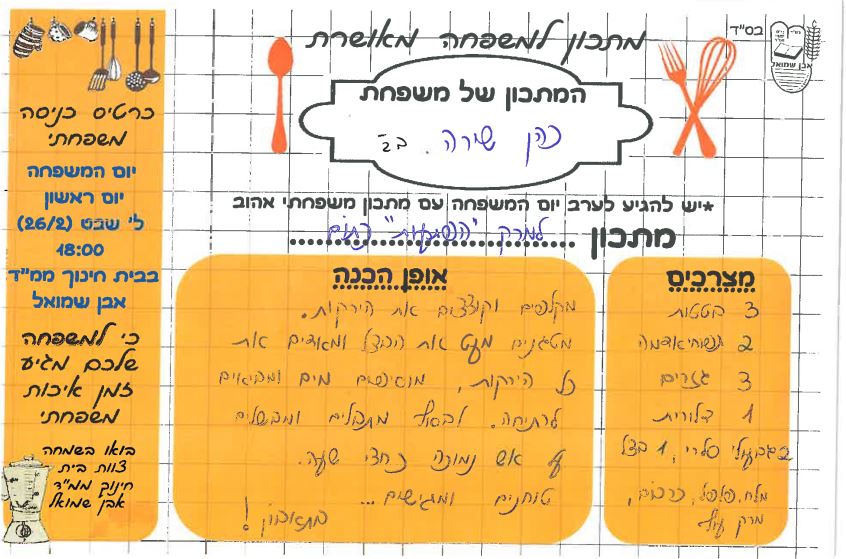 בס"ד
אבן שמואל
מתכון למשפחה מאושרת
המתכון של משפחת
כהן שירה. ב2
*יש להגיע לערב יום המשפחה עם מתכון משפחתי אהוב
מתכון למרק "הפתעות" כתום
מצרכים
3 בטטות
2 תפוחי אדמה
3 גזרים
1 דלורית
2 גבעולי סלרי, 1 בצל
מלח, פלפל, כרכום,
מרק עוף
אופן הכנה
מקלפים וקוצצים את הירקות.
מטגנים מעט את הבצל ומאדים את
כל הירקות, מוסיפים מים ומביאים
לרתיחה. לבסוף מתבלים ומבשלים
על אש נמוכה כחצי שעה.
טוחנים ומגישים...
בתאבון!
כרטיס כניסה
משפחתי
יום המשפחה
יום ראשון
ל' שבט (26/2)
18:00
בבית חינוך ממ"ד
אבן שמואל
כי למשפחה
שלכם מגיע
זמן איכות
משפחתי
בואו בשמחה
צוות בית
חינוך ממ"ד
אבן שמואל